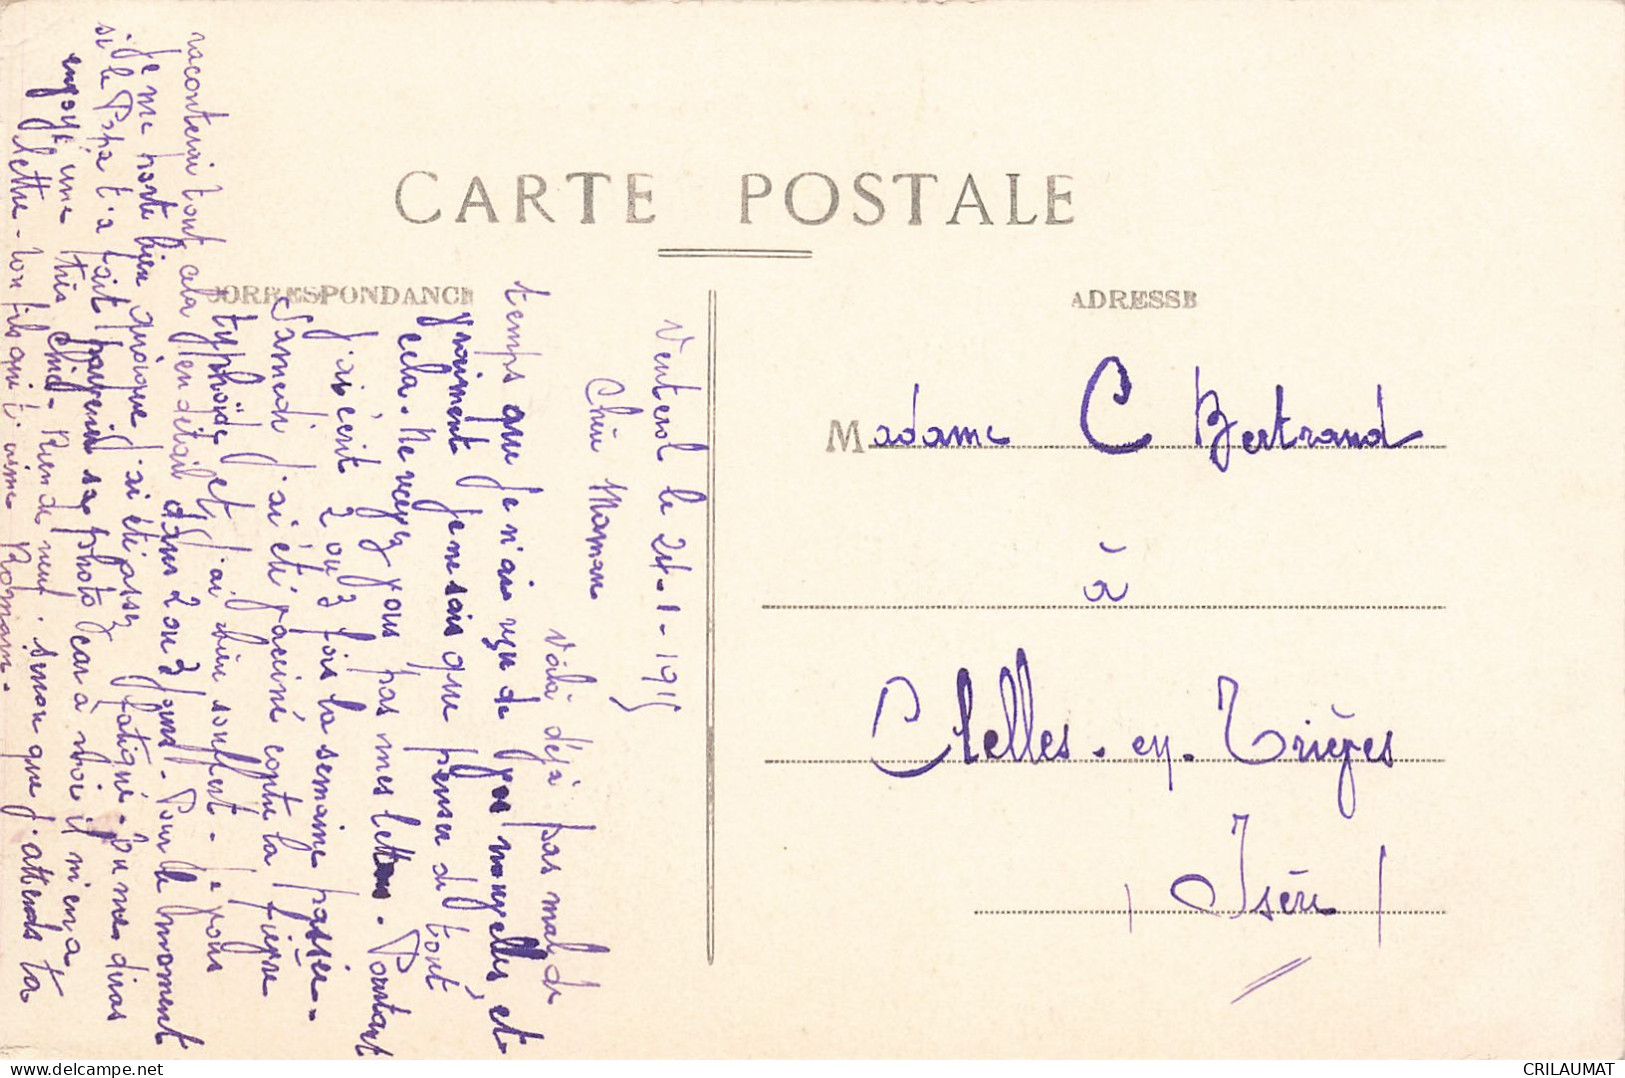 CARTE POSTALE
CORRESPONDANCE
ADRESSE
Madame C Bertrand
à
Clelles-en-Trièges
(Isère)
Venterol le 24-1-1915
Chère Maman
Voilà déjà pas mal de
temps que je n'ai reçu de vos nouvelles, et
vraiment je ne sais que penser de tout
cela. Ne recevez vous pas mes lettres. Pourtant
j'ai écrit 2 ou 3 fois la semaine passée.
Samedi j'ai été vacciné contre la fièvre
typhoïde et j'ai bien souffert. Je vous
raconterai tout cela en détail dans 2 ou 3 jours. Pour le moment
je me porte bien quoique j'ai été assez fatigué. Tu me diras
si le Papa t'a fait parvenir sa photo car à moi il m'en a
envoyé une très chic. Rien de neuf sinon que j'attends ta
lettre. Ton fils qui t'aime Romain.
CRILAUMAT